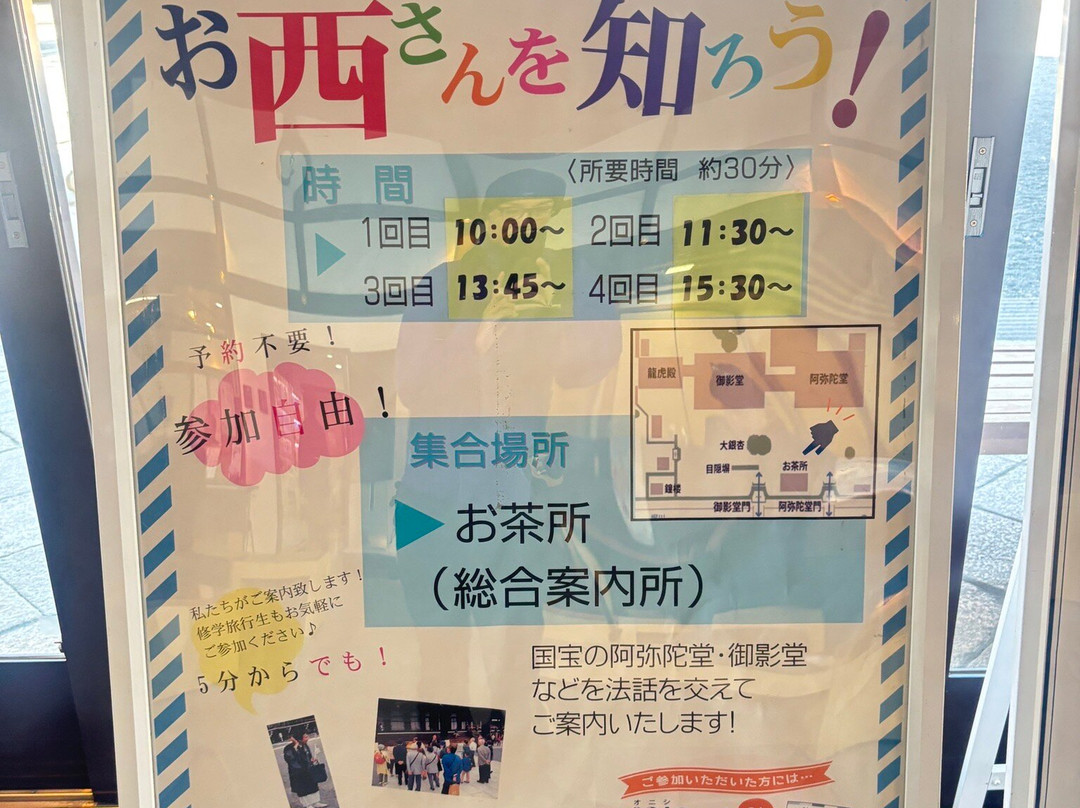 お西さんを知ろう!
時間
〈所要時間 約30分〉
1回目 10:00〜 2回目 11:30〜
3回目 13:45〜 4回目 15:30〜
予約不要!
参加自由!
集合場所
お茶所
(総合案内所)
龍虎殿 御影堂 阿弥陀堂
大銀杏
目隠塀 お茶所
鐘楼
御影堂門 阿弥陀堂門
私たちがご案内致します!
修学旅行生もお気軽に
ご参加ください♪
5分からでも!
国宝の阿弥陀堂・御影堂
などを法話を交えて
ご案内いたします!
ご参加いただいた方には…
オニシ